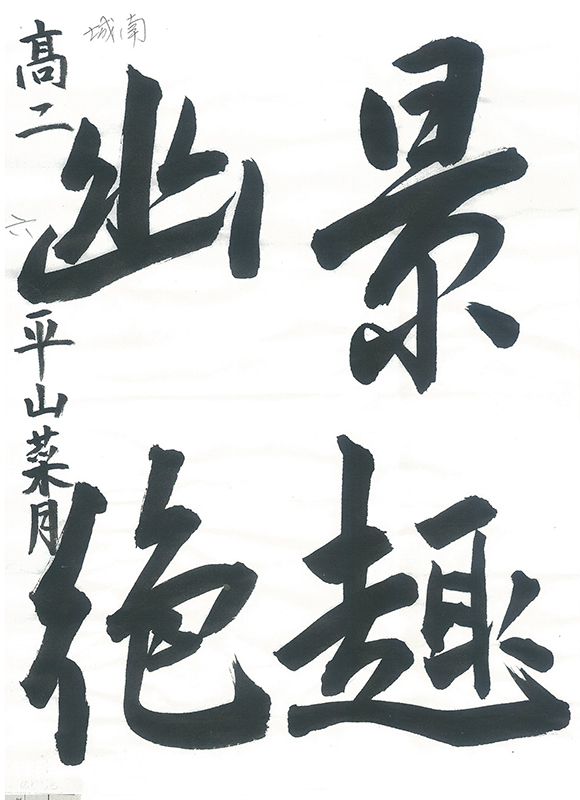 景趣
幽絶
高二 平山菜月
城南
六